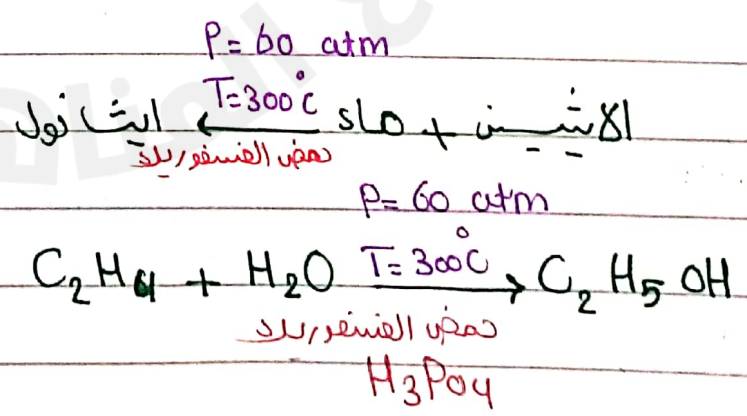 P = 60 atm
T = 300°C
الايثين + ماء ← ايثانول
حمض الفسفوريك
P = 60 atm
T = 300°C
C₂H₄ + H₂O → C₂H₅OH
حمض الفسفوريك
H3PO4